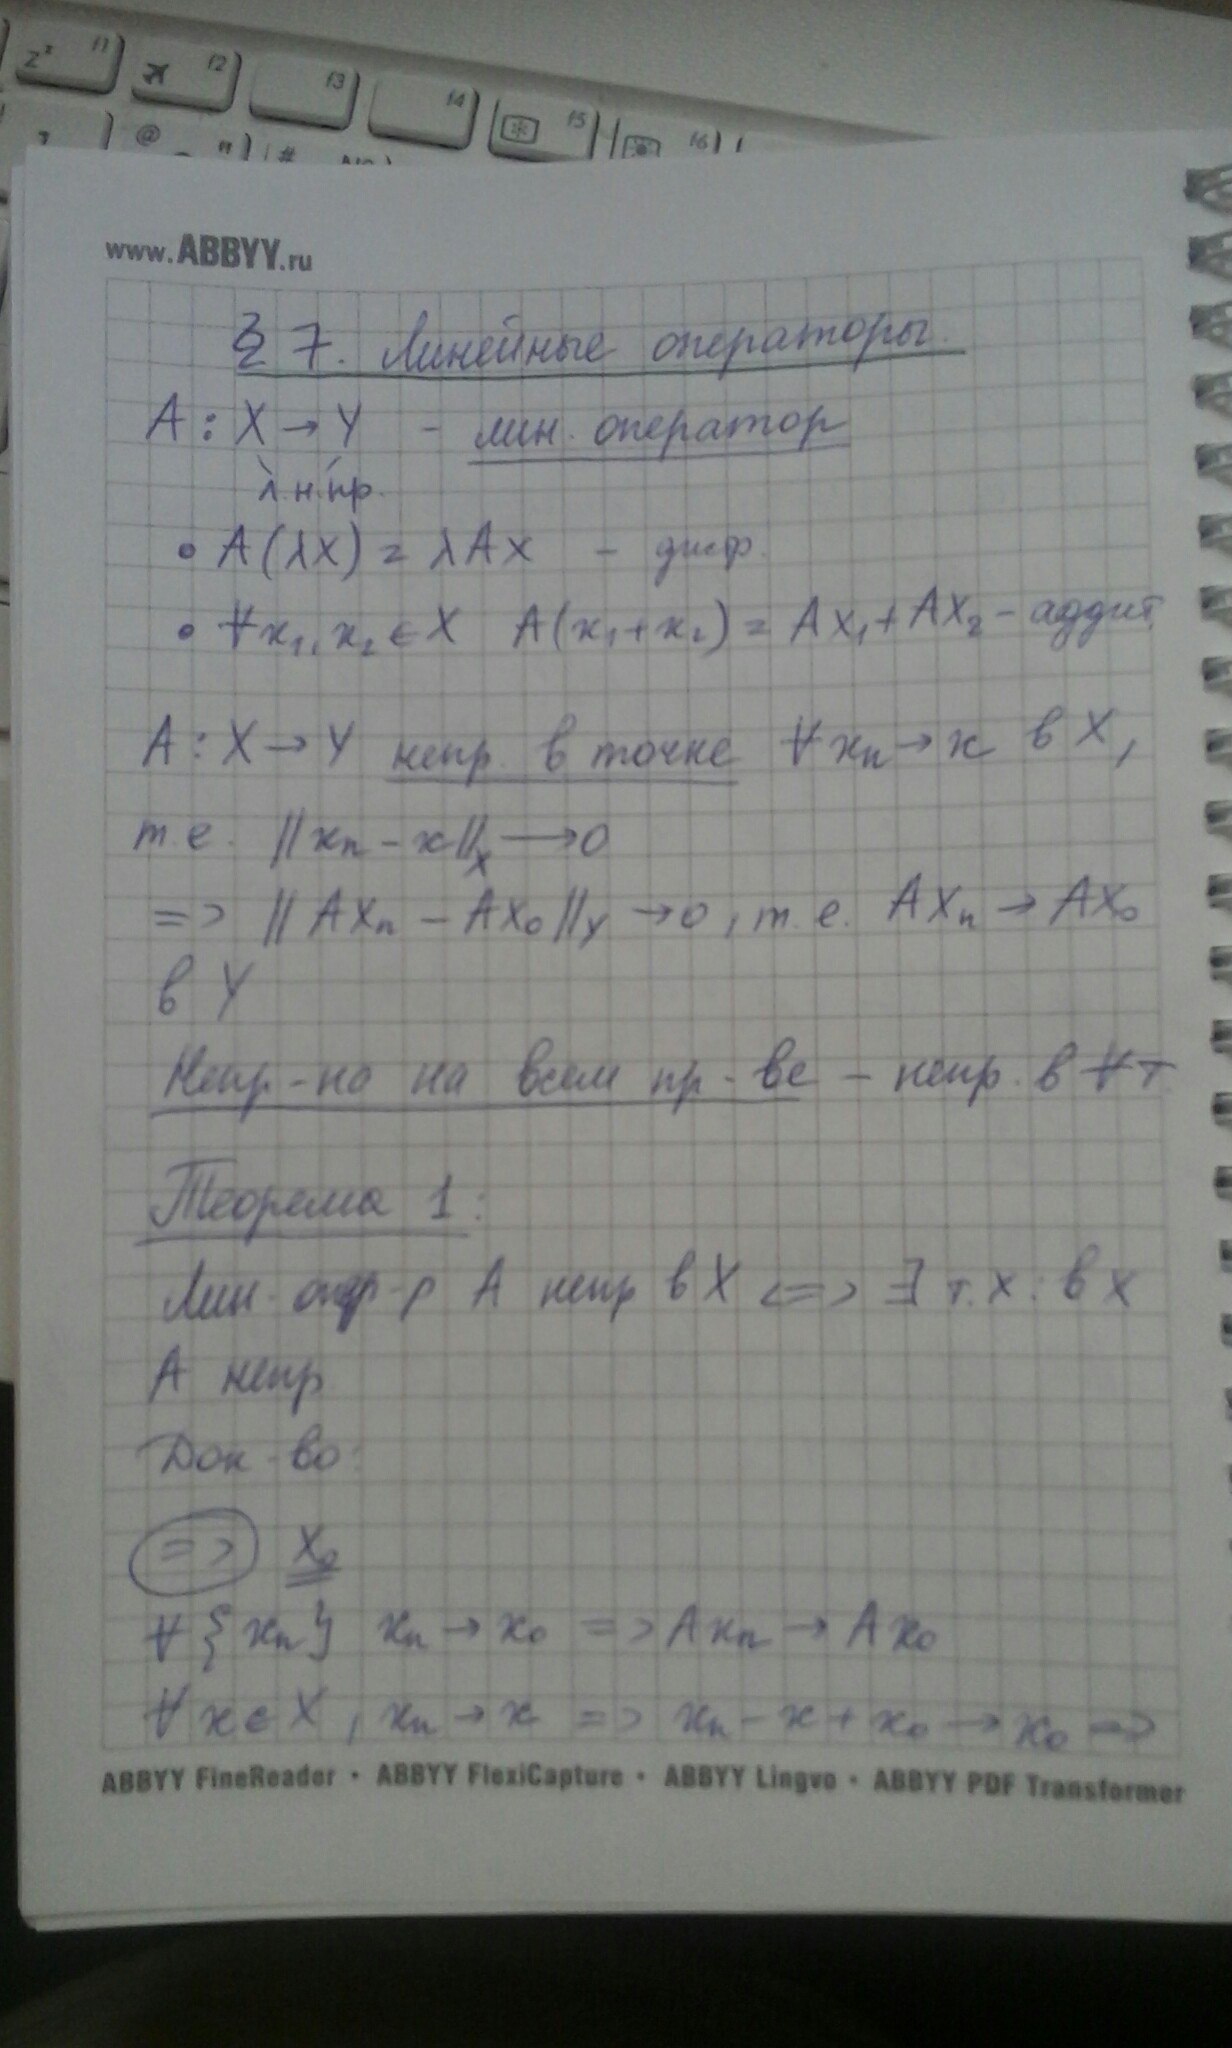 z² f1 f2 f3 f4 f5 f6
@ " #
www.ABBYY.ru
§ 7. Линейные операторы.
A : X → Y - лин. оператор
л.н.пр.
• A(λx) = λAx -
• ∀x₁, x₂ ∈ X A(x₁+x₂) = Ax₁+Ax₂ - аддит.
A : X → Y непр. в точке ∀xₙ → x в X,
т.е. ||xₙ - x||ₓ → 0
=> ||Axₙ - Ax₀||_Y → 0, т.е. Axₙ → Ax₀
в Y
Непр-но на всем пр-ве - непр. в ∀ т.
Теорема 1:
Лин. опр-р A непр в X <=> ∃ т. x : в x
A непр
Док-во:
=> x₀
∀ {xₙ} xₙ → x₀ => Axₙ → Ax₀
∀ x ∈ X, xₙ → x => xₙ - x + x₀ → x₀ =>
ABBYY FineReader • ABBYY FlexiCapture • ABBYY Lingvo • ABBYY PDF Transformer